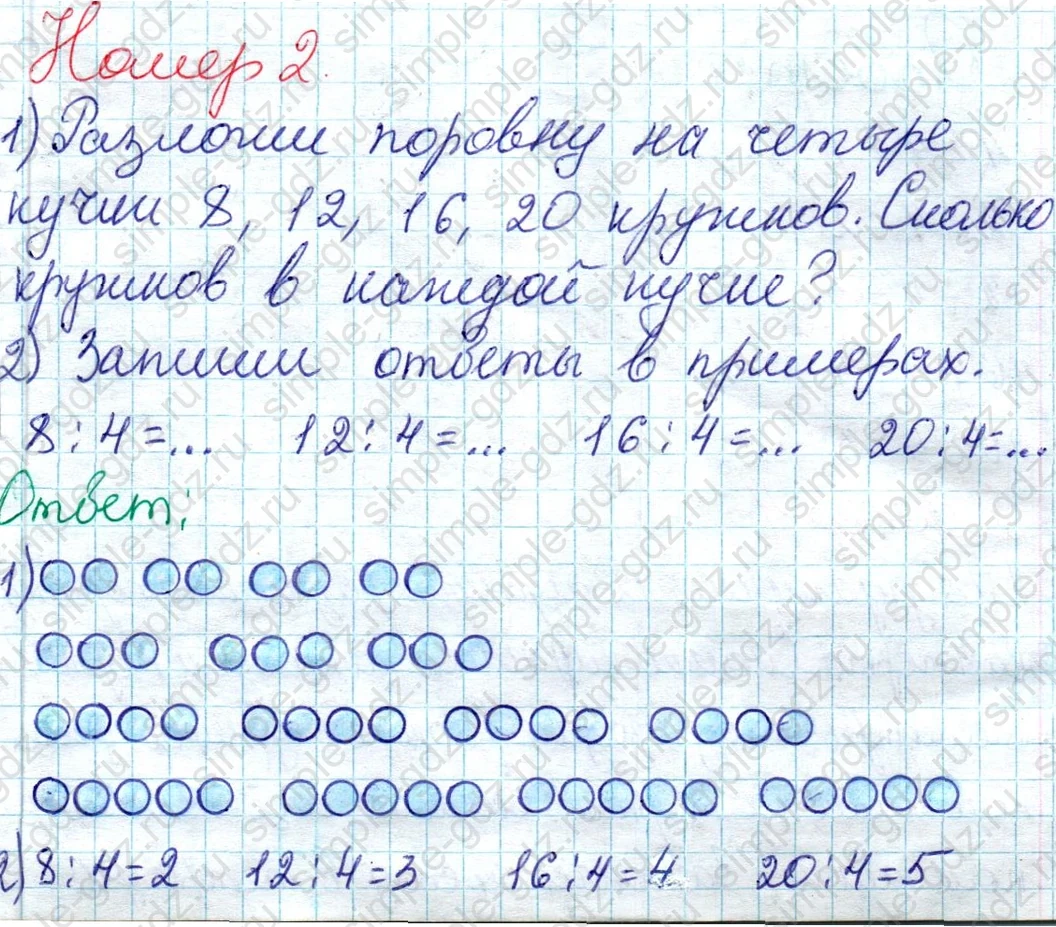 Номер 2.
1) Разложи поровну на четыре
кучки 8, 12, 16, 20 кружков. Сколько
кружков в каждой кучке?
2) Запиши ответы в примерах.
8 : 4 = ... 12 : 4 = ... 16 : 4 = ... 20 : 4 = ...
Ответ:
1)
2) 8 : 4 = 2 12 : 4 = 3 16 : 4 = 4 20 : 4 = 5
simple-gdz.ru